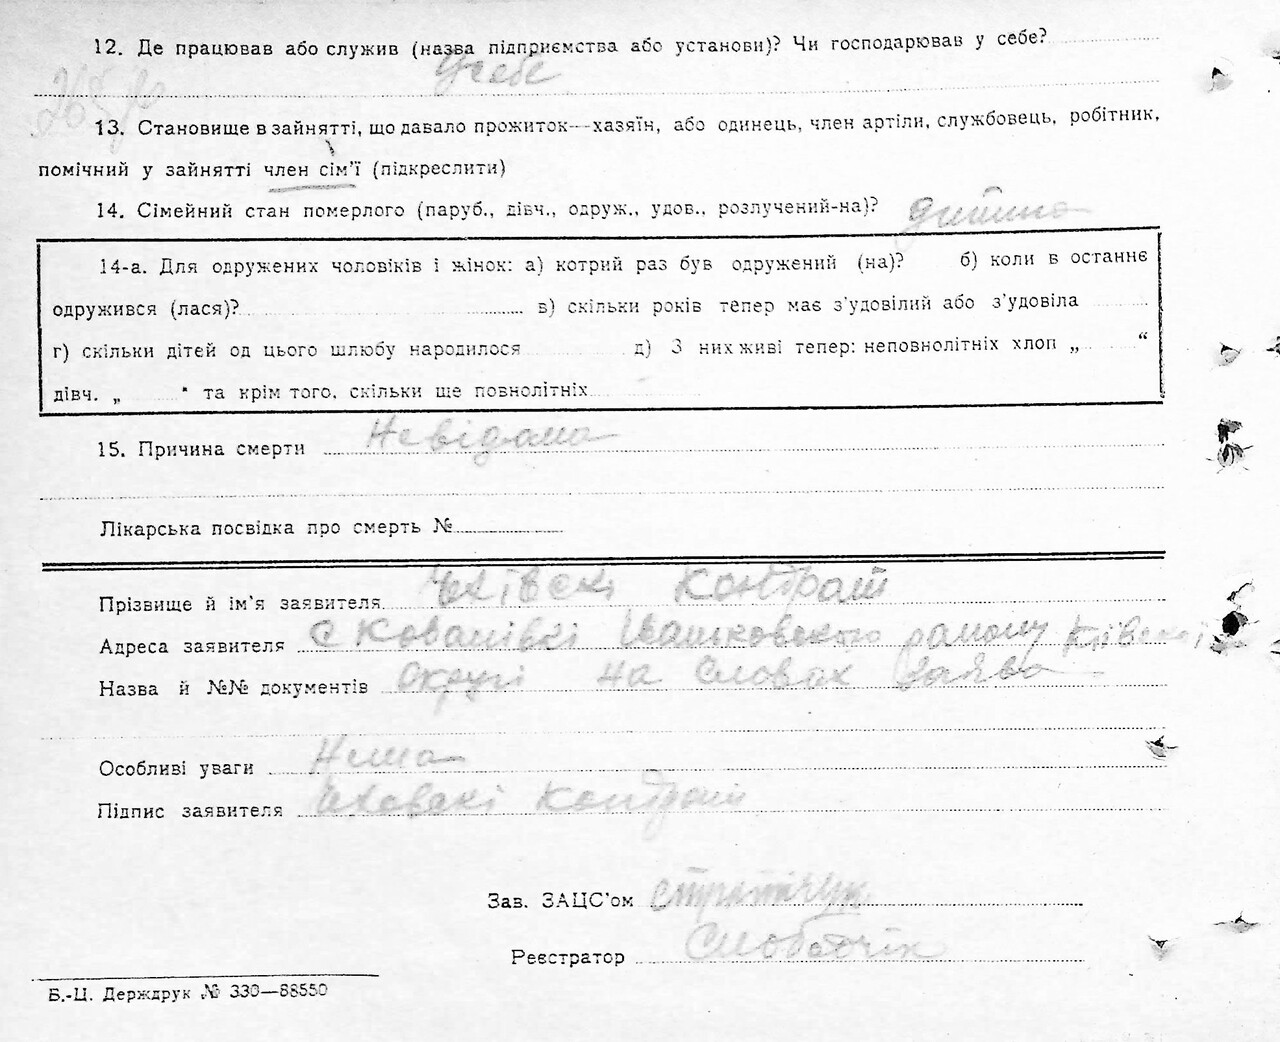 12. Де працював або служив (назва підприємства або установи)? Чи господарював у себе?
У себе
13. Становище в зайнятті, що давало прожиток—хазяїн, або одинець, член артіли, службовець, робітник,
помічний у зайнятті член сім'ї (підкреслити)
14. Сімейний стан померлого (паруб., дівч., одруж., удов., розлучений-на)? дитина
14-а. Для одружених чоловіків і жінок: а) котрий раз був одружений (на)? б) коли в останнє
одружився (лася)? в) скільки років тепер має з'удовілий або з'удовіла
г) скільки дітей од цього шлюбу народилося д) З них живі тепер: неповнолітніх хлоп „ “
дівч. „ “ та крім того, скільки ще повнолітніх
15. Причина смерти Невідома
Лікарська посвідка про смерть №
Прізвище й ім'я заявителя Кондрат
Адреса заявителя с Ковалівкі району Київської
Назва й №№ документів округі на словах заява
Особливі уваги Нема
Підпис заявителя Кондрат
Зав. ЗАЦС'ом
Реєстратор
Б.-Ц. Держдрук № 330—88550